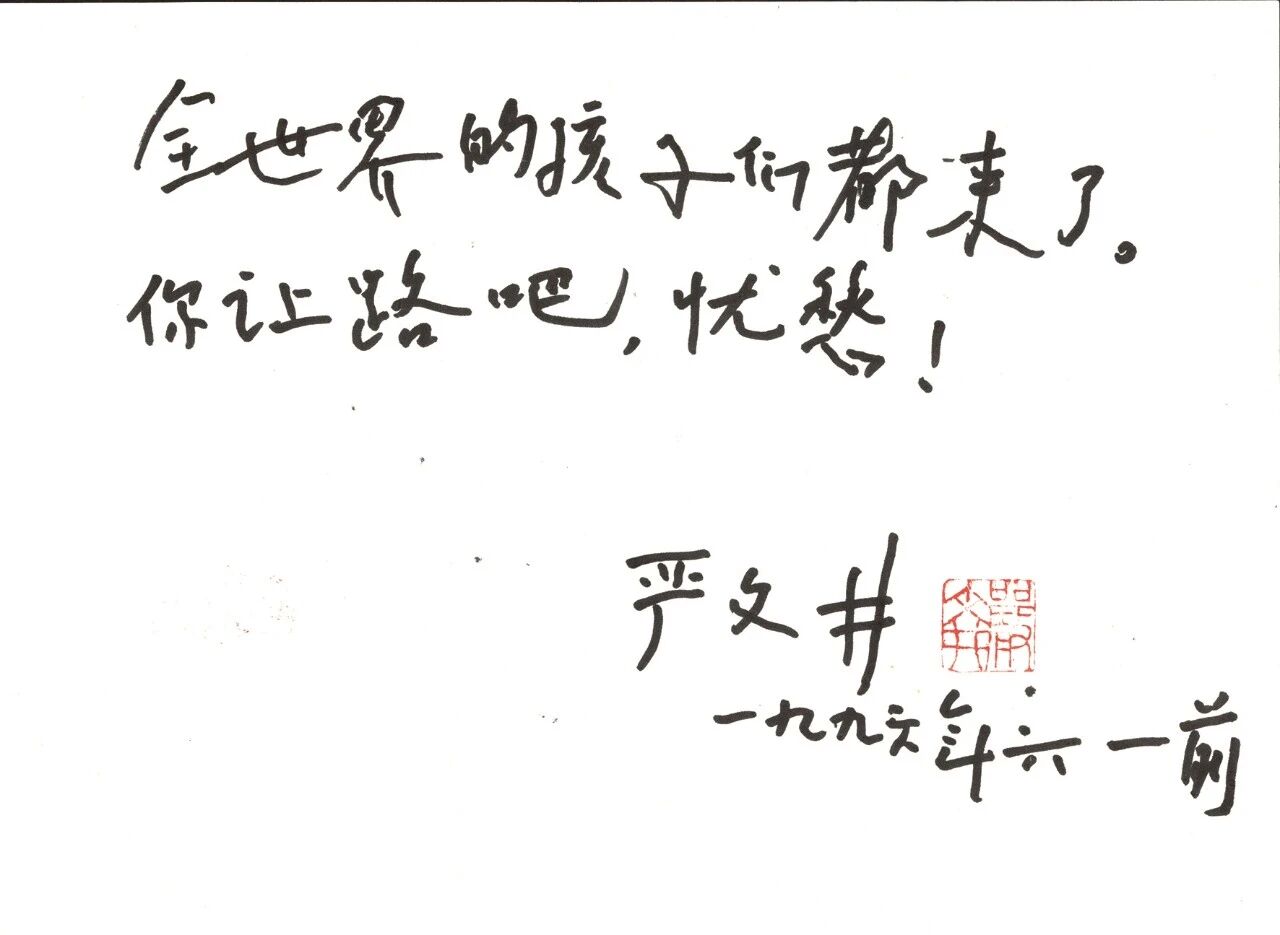 全世界的孩子们都来了。
你让路吧,忧愁!
严文井
一九九六年六一前